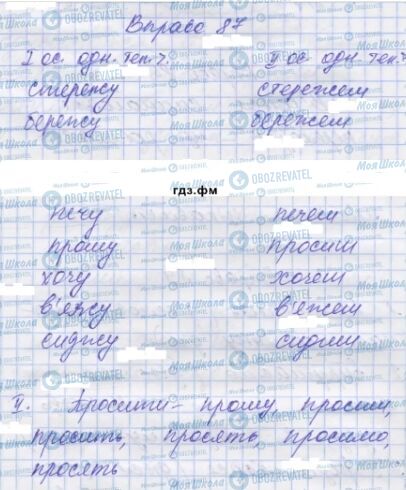 Вправа 87
I ос. одн. теп. ч. II ос. одн. теп. ч.
стережу стережеш
бережу бережеш
гдз.фм
печу печеш
прошу просиш
хочу хочеш
в'яжу в'яжеш
сиджу сидиш
II. Просити – прошу, просиш,
просить, просять, просимо,
просять
Моя Школа
OBOZREVATEL